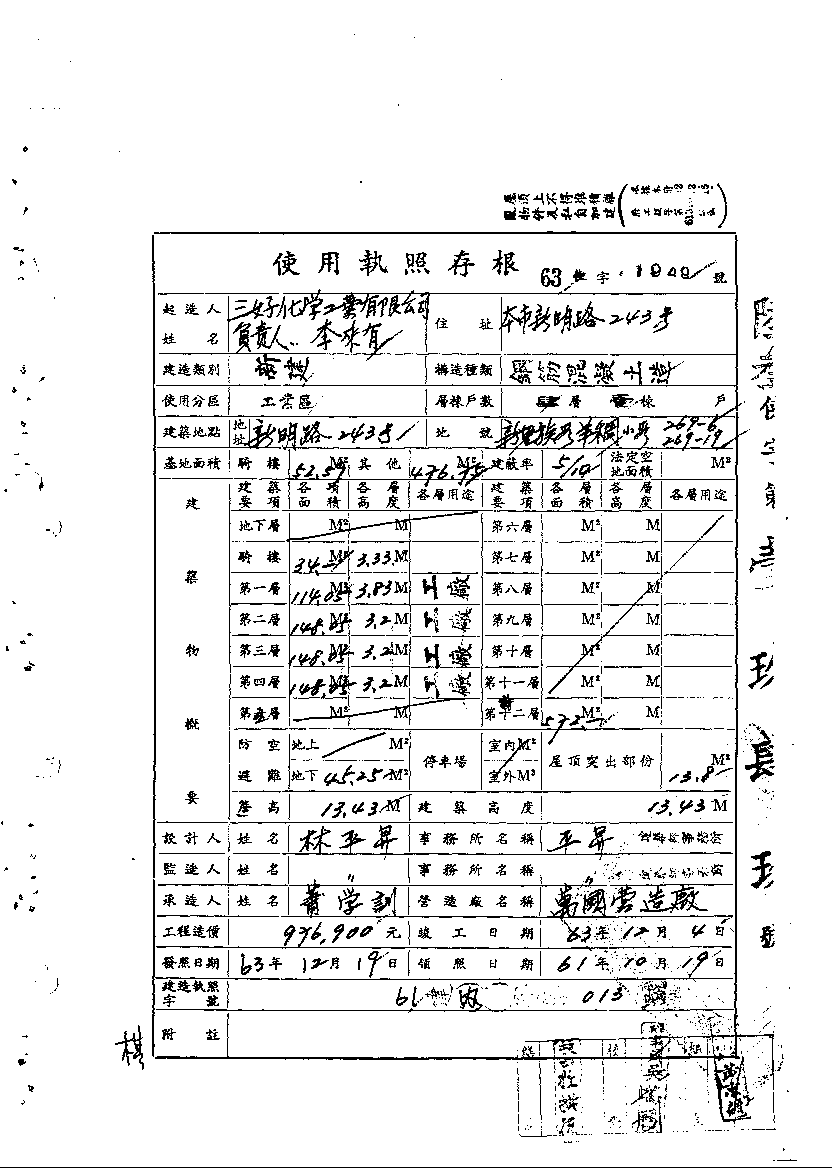 屋頂上不得堆積雜
亂物件及私自加建
使用執照存根 63 使字 1949 號
起造人姓名 三好化学工業有限公司 負責人 李來有 住址 本市新明路243号
建造類別 構造種類 鋼筋混凝土造
使用分區 工業區 層棟戶數 層 棟 戶
建築地點 地址 新明路243号 地號 小段 269-6 269-19
基地面積 騎樓 52.57 M² 其他 476.75 M² 建蔽率 5/10 法定空地面積 M²
建築物概要
建築要項 各項面積 各層高度 各層用途 建築要項 各項面積 各層高度 各層用途
地下層 M² M 第六層 M² M
騎樓 34. M² 3.33 M 第七層 M² M
第一層 114.05 M² 3.83 M 工廠 第八層 M² M
第二層 148.65 M² 3.2 M 工廠 第九層 M² M
第三層 148.65 M² 3.2 M 工廠 第十層 M² M
第四層 148.65 M² 3.2 M 工廠 第十一層 M² M
第五層 M² M 第十二層 M² M
防空避難 地上 M² 停車場 室內 M² 屋頂突出部份 M²
地下 45.25 M² 室外 M² 13.8
簷高 13.43 M 建築高度 13.43 M
設計人 姓名 林平昇 事務所名稱 平昇
監造人 姓名 〃 事務所名稱 〃
承造人 姓名 蕭学訓 營造廠名稱 萬國営造廠
工程造價 976,900 元 竣工日期 63年12月4日
發照日期 63年12月19日 領照日期 61年10月19日
建造執照字號 61 內 013
附註
棋